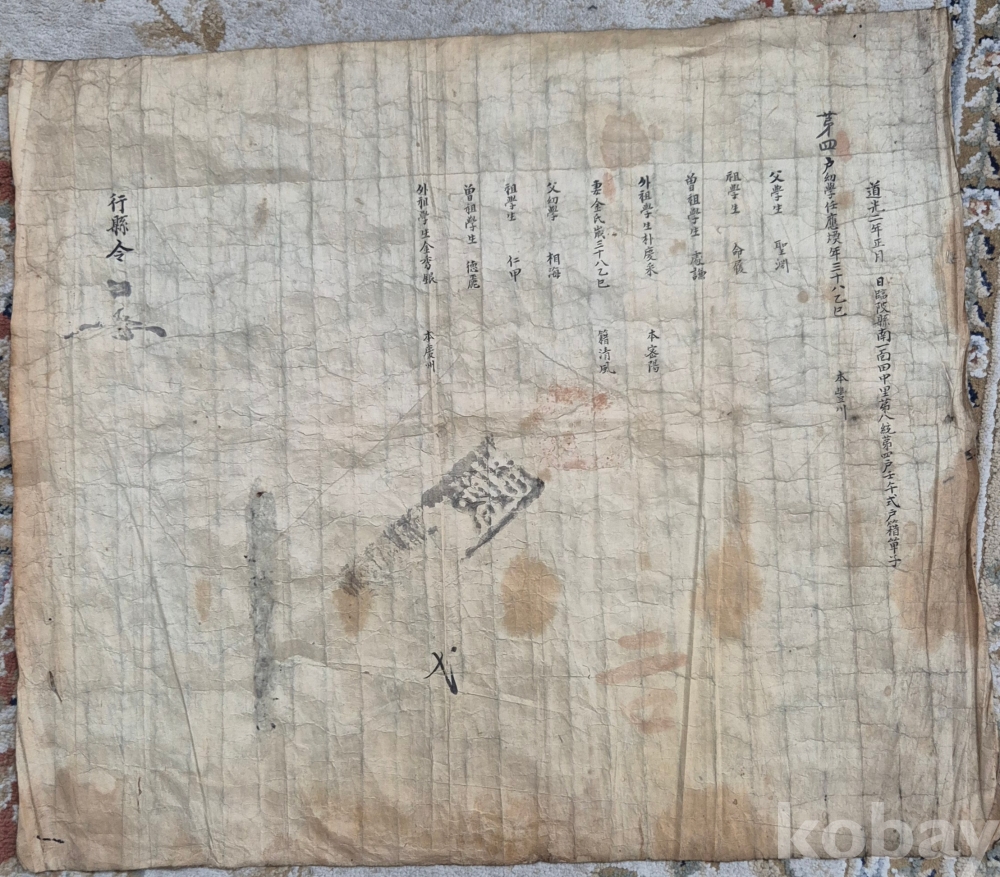 道光二年正月 日臨陂縣南一面田甲里第八統第四戶壬午式戶籍單子
第四戶幼學任應煥年三十八乙巳 本豊川
父學生 聖淵
祖學生 命
曾祖學生 處謙
外祖學生朴慶采 本密陽
妻金氏歲三十八乙巳 籍清風
父幼學 相海
祖學生 仁甲
曾祖學生 德
外祖學生金秀 本慶州
行縣令
kobay